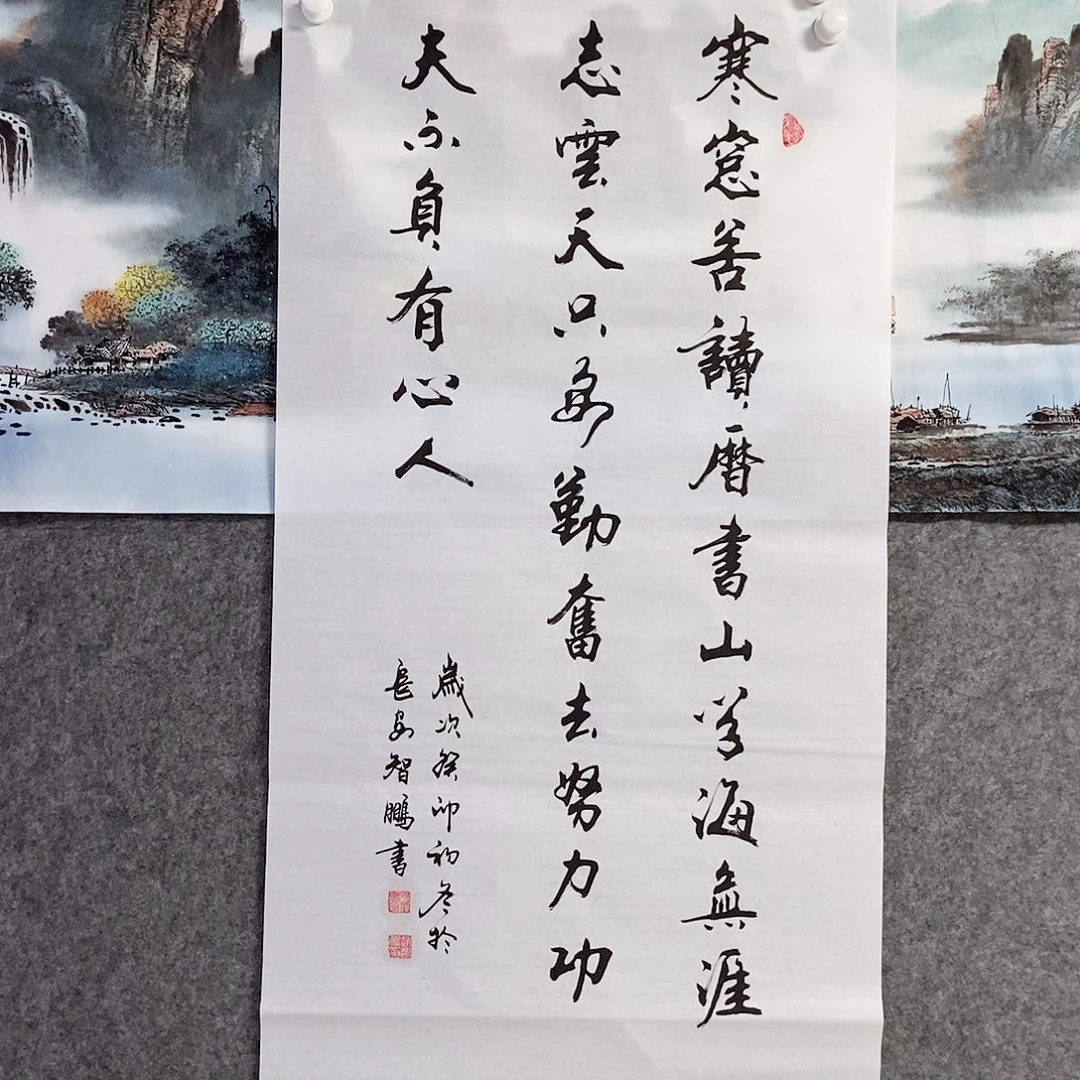 寒窓苦讀曆書山学海無涯
志雲天只要勤奮去努力功
夫不負有心人
歲次癸卯初冬於
長安智鵬書